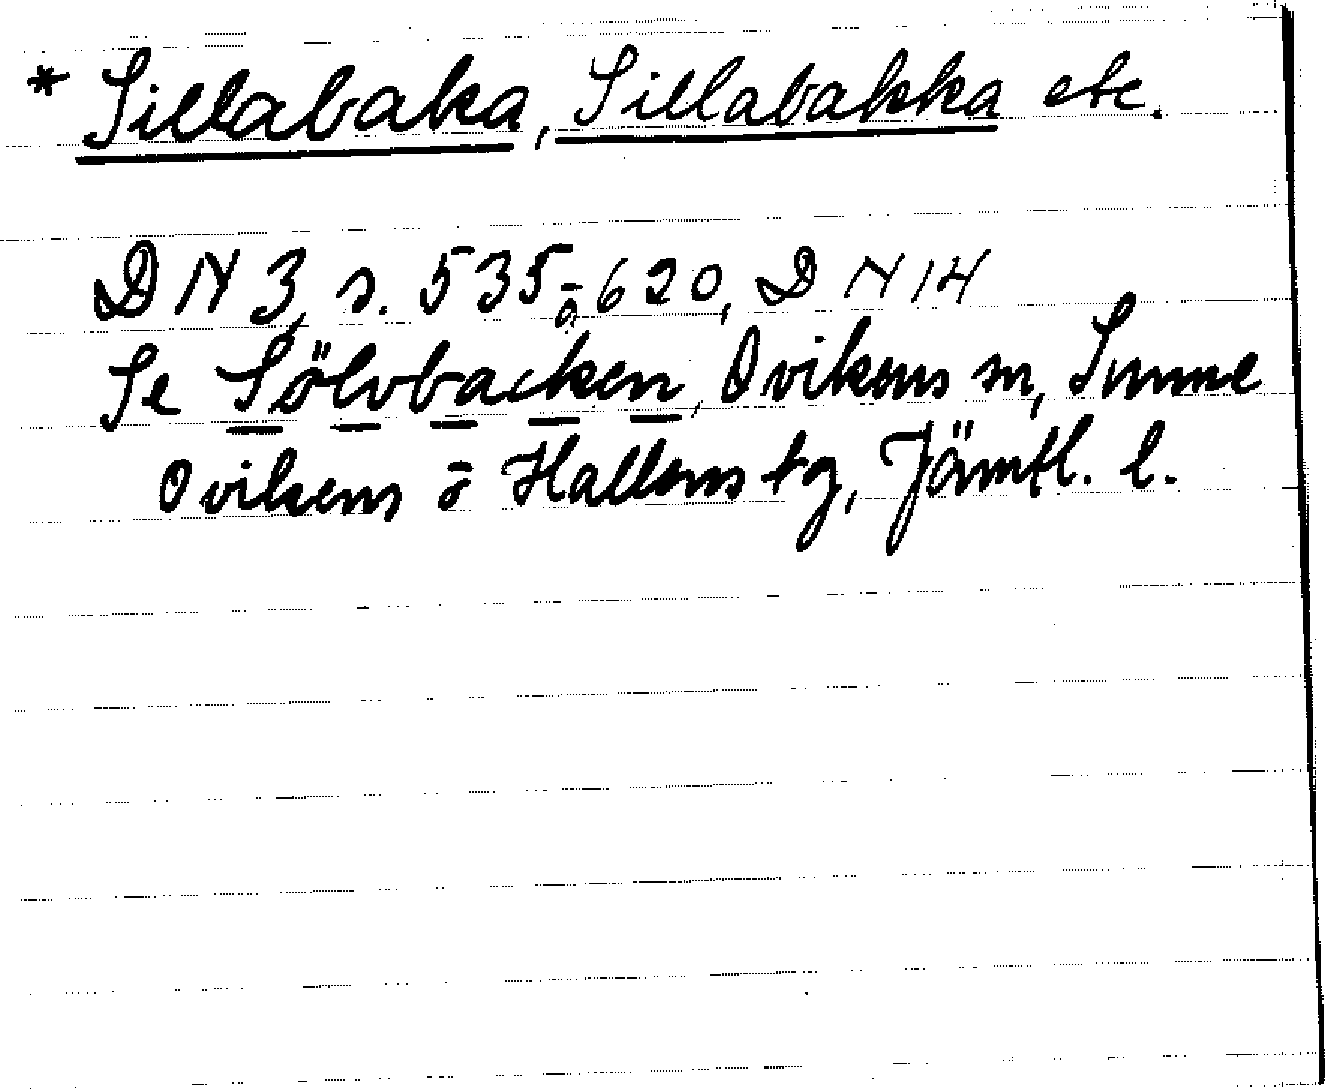 * Sillabaka, Sillabakka etc.
DN 3, s. 535 o 620, DN 14
Se Sölvbacken, Ovikens sn, Sunne
Ovikens o Hallens tg, Jämtl. l.